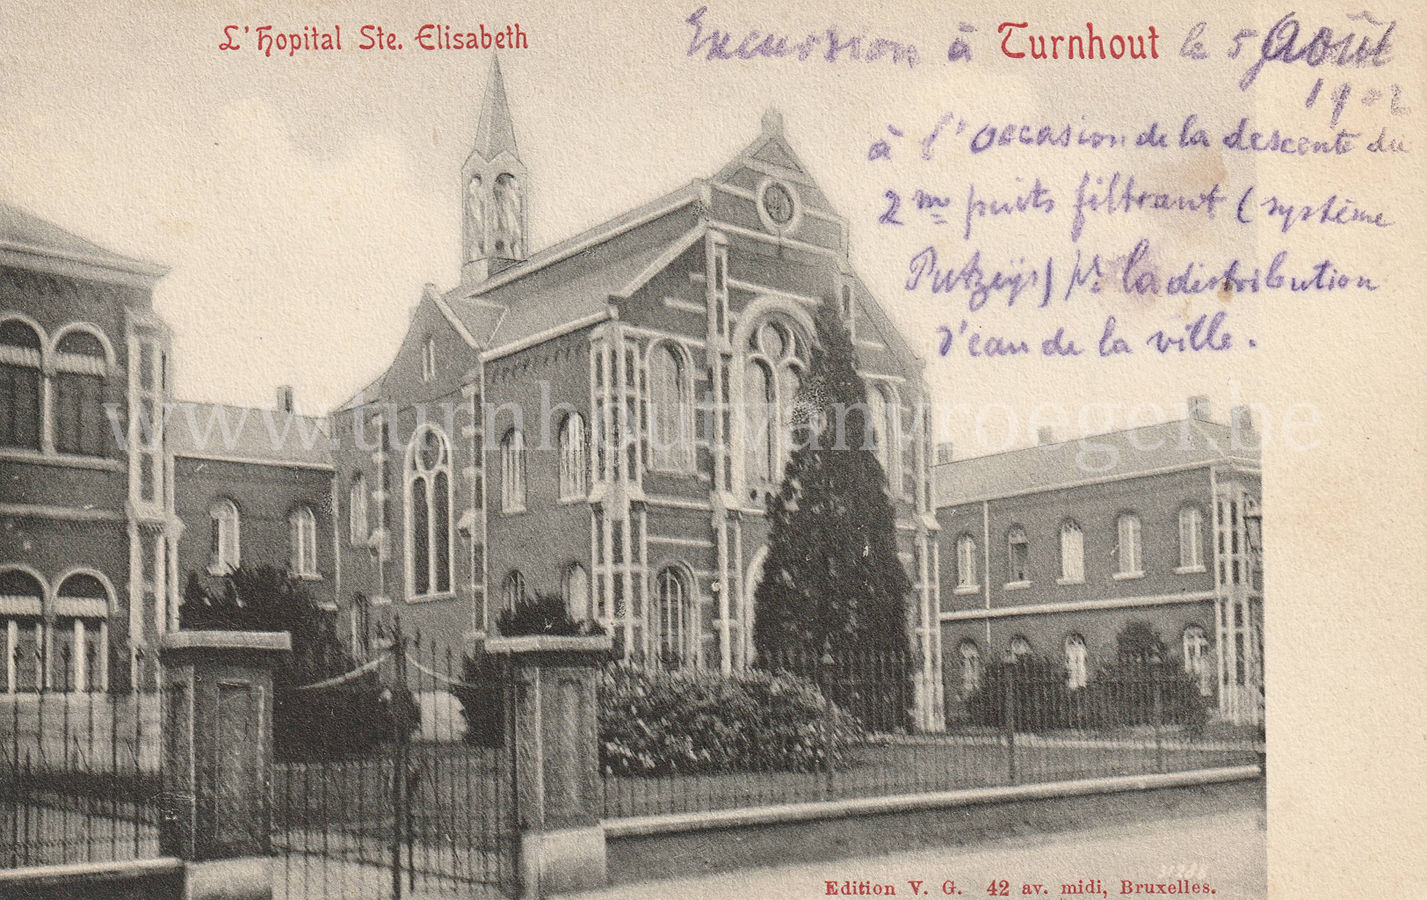 L'Hopital Ste. Elisabeth
Excursion à Turnhout le 5 Août
1902
à l'occasion de la descente du
2me puits filtrant (système
Putzeÿs) pr la distribution
d'eau de la ville.
www.turnhoutvanvroeger.be
Edition V. G. 42 av. midi, Bruxelles.